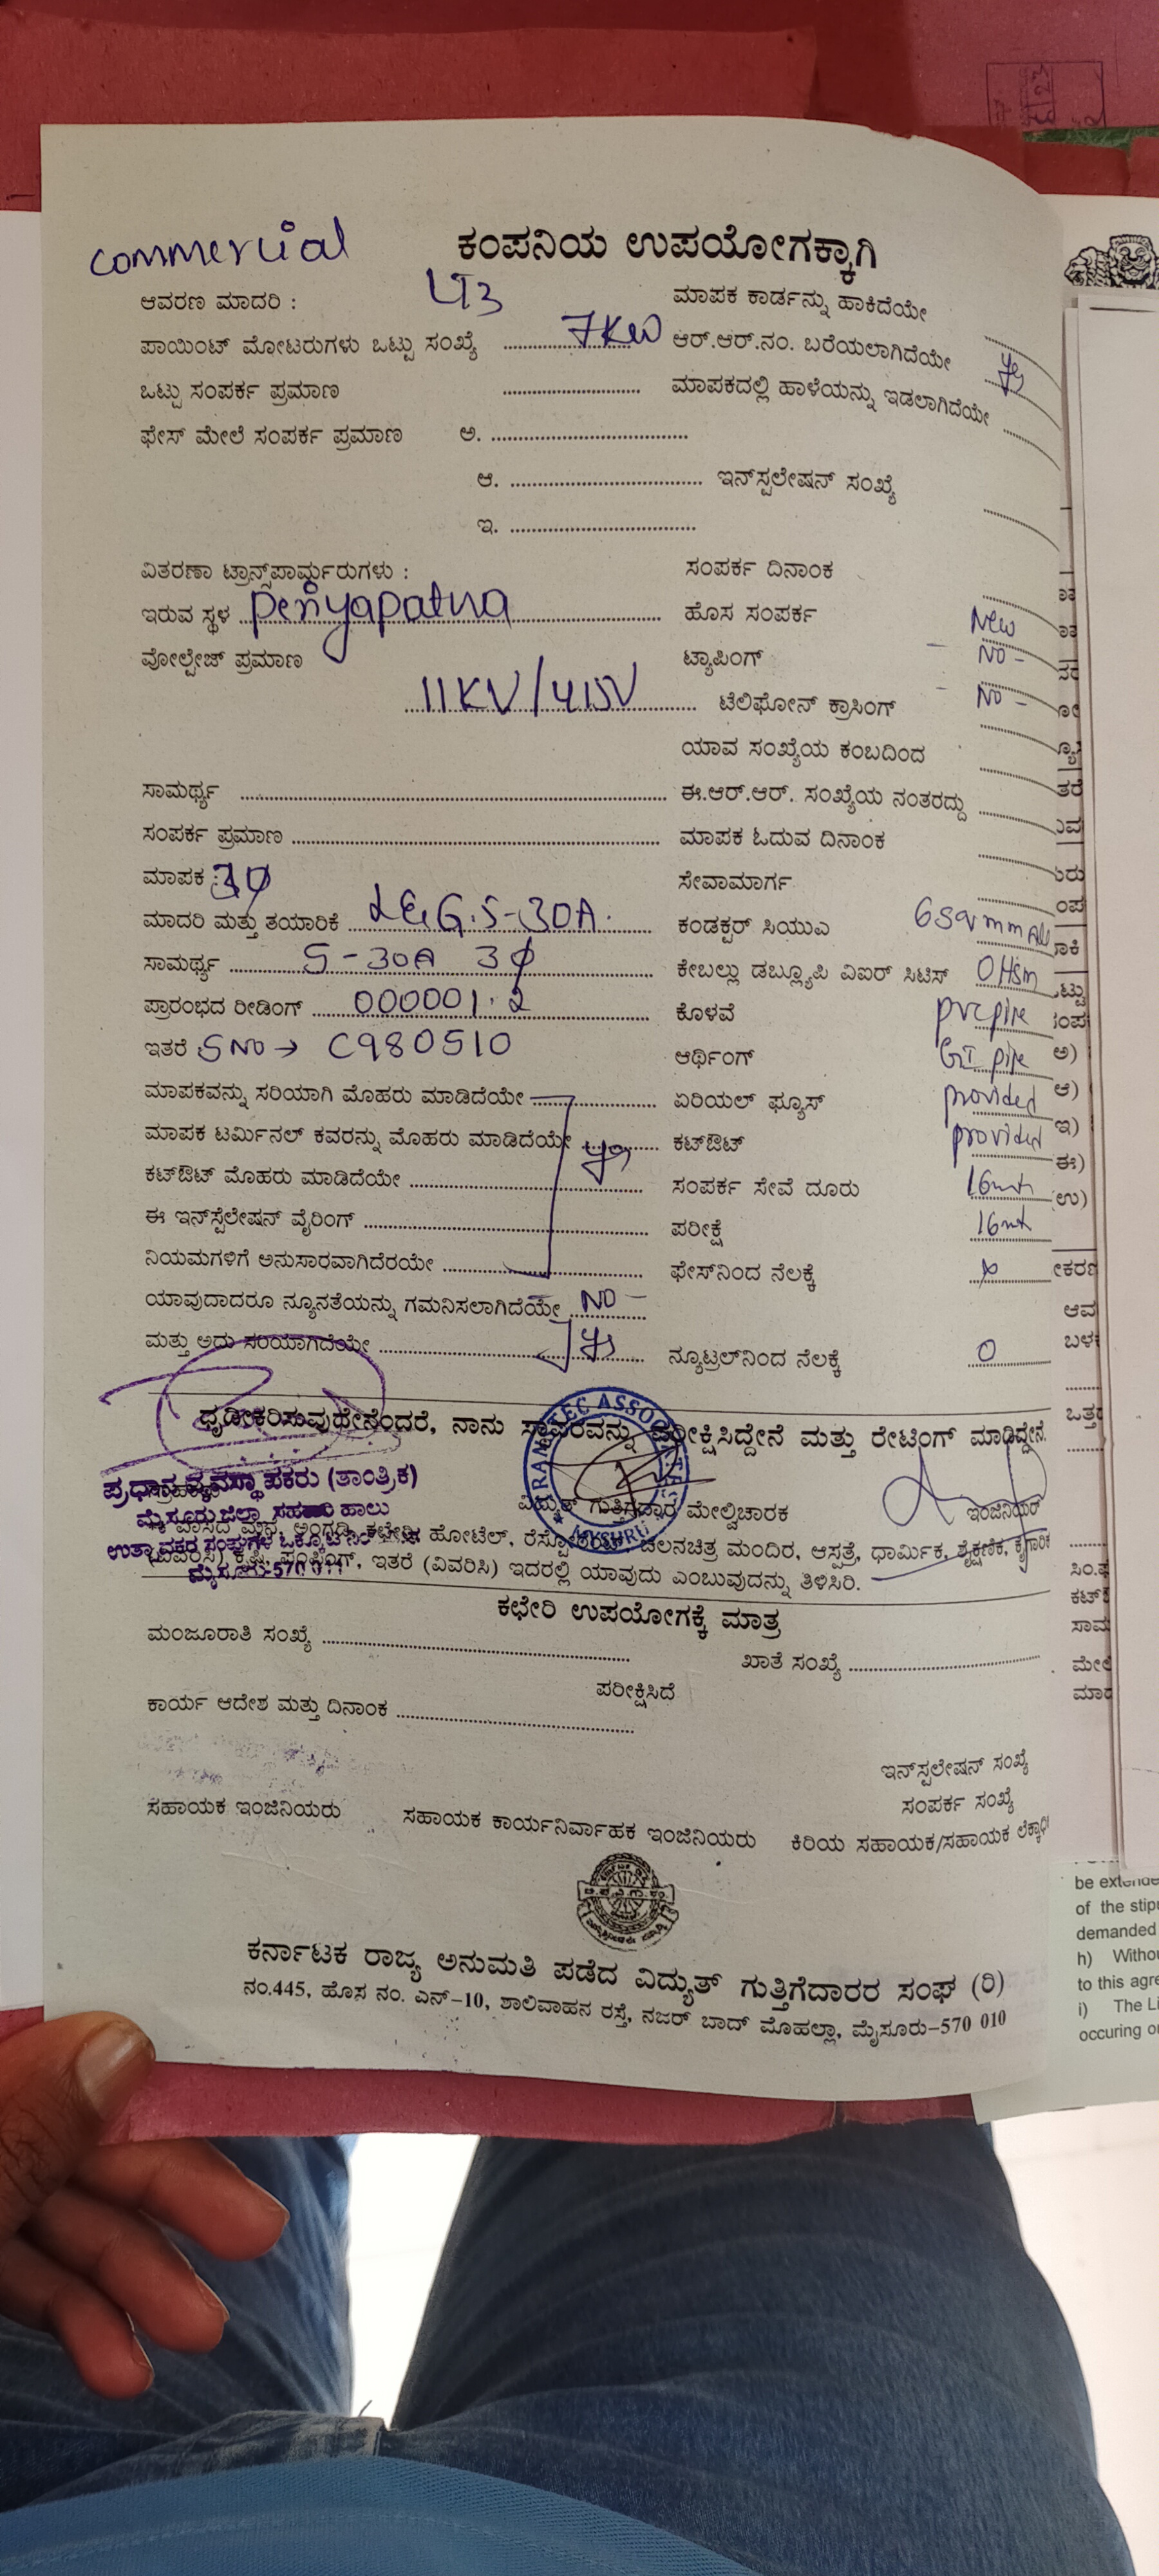 commercial
ಕಂಪನಿಯ ಉಪಯೋಗಕ್ಕಾಗಿ
ಆವರಣ ಮಾದರಿ : LT3
ಮಾಪಕ ಕಾರ್ಡನ್ನು ಹಾಕಿದೆಯೇ
ಪಾಯಿಂಟ್ ಮೋಟರುಗಳು ಒಟ್ಟು ಸಂಖ್ಯೆ 7KW
ಆರ್.ಆರ್.ನಂ. ಬರೆಯಲಾಗಿದೆಯೇ yes
ಒಟ್ಟು ಸಂಪರ್ಕ ಪ್ರಮಾಣ
ಮಾಪಕದಲ್ಲಿ ಹಾಳೆಯನ್ನು ಇಡಲಾಗಿದೆಯೇ
ಫೇಸ್ ಮೇಲೆ ಸಂಪರ್ಕ ಪ್ರಮಾಣ ಅ.
ಆ. ಇನ್‌ಸ್ಪಲೇಷನ್ ಸಂಖ್ಯೆ
ಇ.
ವಿತರಣಾ ಟ್ರಾನ್ಸ್‌ಪಾರ್ಮ್ರರುಗಳು :
ಸಂಪರ್ಕ ದಿನಾಂಕ
ಇರುವ ಸ್ಥಳ periyapatna
ಹೊಸ ಸಂಪರ್ಕ New
ವೋಲ್ಟೇಜ್ ಪ್ರಮಾಣ
ಟ್ಯಾಪಿಂಗ್ - NO -
11KV/415V
ಟೆಲಿಫೋನ್ ಕ್ರಾಸಿಂಗ್ - NO -
ಯಾವ ಸಂಖ್ಯೆಯ ಕಂಬದಿಂದ
ಸಾಮರ್ಥ್ಯ
ಈ.ಆರ್.ಆರ್. ಸಂಖ್ಯೆಯ ನಂತರದ್ದು
ಸಂಪರ್ಕ ಪ್ರಮಾಣ
ಮಾಪಕ ಓದುವ ದಿನಾಂಕ
ಮಾಪಕ : 3φ
ಸೇವಾಮಾರ್ಗ
ಮಾದರಿ ಮತ್ತು ತಯಾರಿಕೆ L&G.5-30A.
ಕಂಡಕ್ಟರ್ ಸಿಯುಎ 6sqmm
ಸಾಮರ್ಥ್ಯ 5-30A 3φ
ಕೇಬಲ್ಲು ಡಬ್ಲ್ಯೂಪಿ ವಿಐರ್ ಸಿಟಿಸ್
ಪ್ರಾರಂಭದ ರೀಡಿಂಗ್ 000001.2
ಕೊಳವೆ pvc pipe
ಇತರೆ SNO → C980510
ಆರ್ಥಿಂಗ್ GI pipe
ಮಾಪಕವನ್ನು ಸರಿಯಾಗಿ ಮೊಹರು ಮಾಡಿದೆಯೇ
ಏರಿಯಲ್ ಫ್ಯೂಸ್ provided
ಮಾಪಕ ಟರ್ಮಿನಲ್ ಕವರನ್ನು ಮೊಹರು ಮಾಡಿದೆಯೇ yes
ಕಟ್‌ಔಟ್ provided
ಕಟ್‌ಔಟ್ ಮೊಹರು ಮಾಡಿದೆಯೇ
ಸಂಪರ್ಕ ಸೇವೆ ದೂರು 16mt
ಈ ಇನ್‌ಸ್ಪೆಲೇಷನ್ ವೈರಿಂಗ್
ಪರೀಕ್ಷೆ 16mt
ನಿಯಮಗಳಿಗೆ ಅನುಸಾರವಾಗಿದೆರಯೇ
ಫೇಸ್‌ನಿಂದ ನೆಲಕ್ಕೆ
ಯಾವುದಾದರೂ ನ್ಯೂನತೆಯನ್ನು ಗಮನಿಸಲಾಗಿದೆಯೇ NO
ಮತ್ತು ಅದು ಸರಿಯಾಗಿದೆಯೇ yes
ನ್ಯೂಟ್ರಲ್‌ನಿಂದ ನೆಲಕ್ಕೆ 0
ಧೃಡೀಕರಿಸುವುದೇನೆಂದರೆ, ನಾನು ಸ್ಥಾವರವನ್ನು ಪರೀಕ್ಷಿಸಿದ್ದೇನೆ ಮತ್ತು ರೇಟಿಂಗ್ ಮಾಡಿದ್ದೇನೆ.
ಪ್ರಧಾನ ವ್ಯವಸ್ಥಾಪಕರು (ತಾಂತ್ರಿಕ)
ಮೈಸೂರು ಜಿಲ್ಲಾ ಸಹಕಾರಿ ಹಾಲು
ವಿದ್ಯುತ್ ಗುತ್ತಿಗೆದಾರ ಮೇಲ್ವಿಚಾರಕ
ಇಂಜಿನಿಯರ್
ವಾಸದ ಮನೆ, ಅಂಗಡಿ, ಕಛೇರಿ, ಹೋಟೆಲ್, ರೆಸ್ಟೋರೆಂಟ್, ಚಲನಚಿತ್ರ ಮಂದಿರ, ಆಸ್ಪತ್ರೆ, ಧಾರ್ಮಿಕ, ಶೈಕ್ಷಣಿಕ,
ಉತ್ಪಾದಕರ ಸಂಘಗಳ ಒಕ್ಕೂಟ
ಮೈಸೂರು-570 011
ಇತರೆ (ವಿವರಿಸಿ) ಇದರಲ್ಲಿ ಯಾವುದು ಎಂಬುವುದನ್ನು ತಿಳಿಸಿರಿ.
ಕಛೇರಿ ಉಪಯೋಗಕ್ಕೆ ಮಾತ್ರ
ಮಂಜೂರಾತಿ ಸಂಖ್ಯೆ
ಖಾತೆ ಸಂಖ್ಯೆ
ಪರೀಕ್ಷಿಸಿದೆ
ಕಾರ್ಯ ಆದೇಶ ಮತ್ತು ದಿನಾಂಕ
ಇನ್‌ಸ್ಪಲೇಷನ್ ಸಂಖ್ಯೆ
ಸಂಪರ್ಕ ಸಂಖ್ಯೆ
ಸಹಾಯಕ ಇಂಜಿನಿಯರು ಸಹಾಯಕ ಕಾರ್ಯನಿರ್ವಾಹಕ ಇಂಜಿನಿಯರು ಕಿರಿಯ ಸಹಾಯಕ/ಸಹಾಯಕ
ಕರ್ನಾಟಕ ರಾಜ್ಯ ಅನುಮತಿ ಪಡೆದ ವಿದ್ಯುತ್ ಗುತ್ತಿಗೆದಾರರ ಸಂಘ (ರಿ)
ನಂ.445, ಹೊಸ ನಂ. ಎನ್-10, ಶಾಲಿವಾಹನ ರಸ್ತೆ, ನಜರ್ ಬಾದ್ ಮೊಹಲ್ಲಾ, ಮೈಸೂರು-570 010
of the
demanded
h)
to this
i)